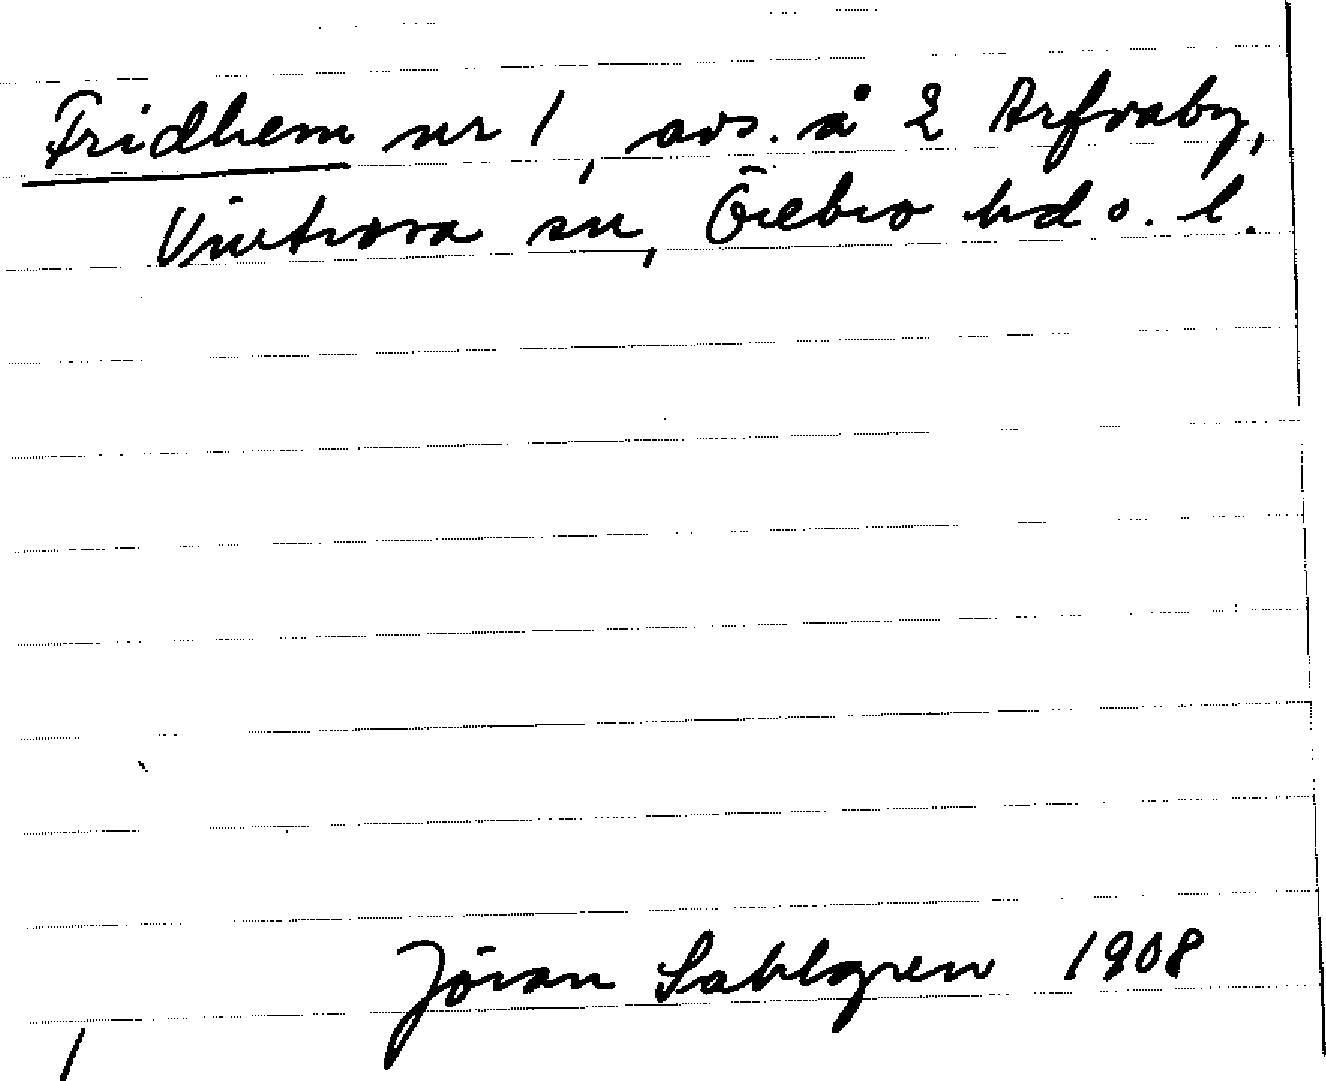 Fridhem nr 1, avs. å 2 Arfvaby,
Vintrosa sn, Örebro hd o. l.
Jöran Sahlgren 1908
/